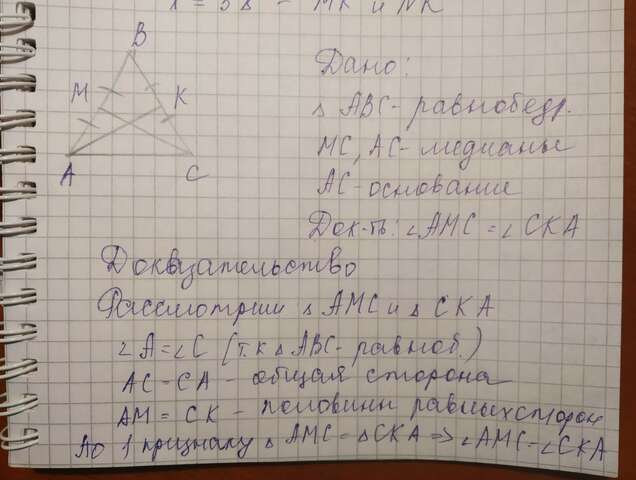 B
M
K
A
C
Дано:
△ ABC - равнобедр.
MC, AC - медианы
AC - основание
Док-ть: ∠AMC = ∠CKA
Доквзательство
Рассмотрим △ AMC и △ CKA
∠A = ∠C (т.к △ABC - равноб.)
AC = CA - общая сторона
AM = CK - половины равных сторон
По 1 признаку △ AMC = △CKA => ∠AMC = ∠CKA